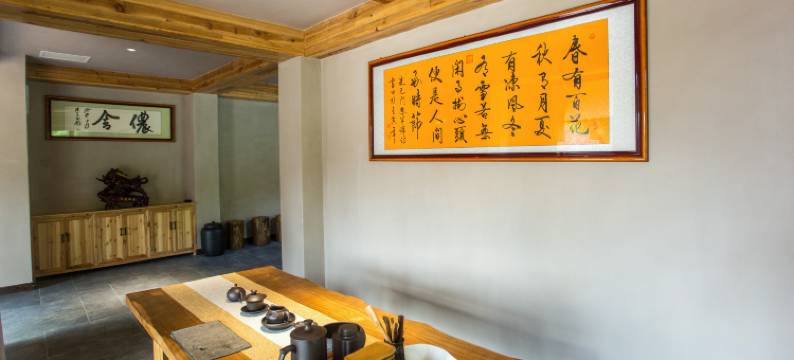 春有百花
秋有月夏
有凉风冬
有雪若无
闲事挂心头
便是人间
好时节
儂舍